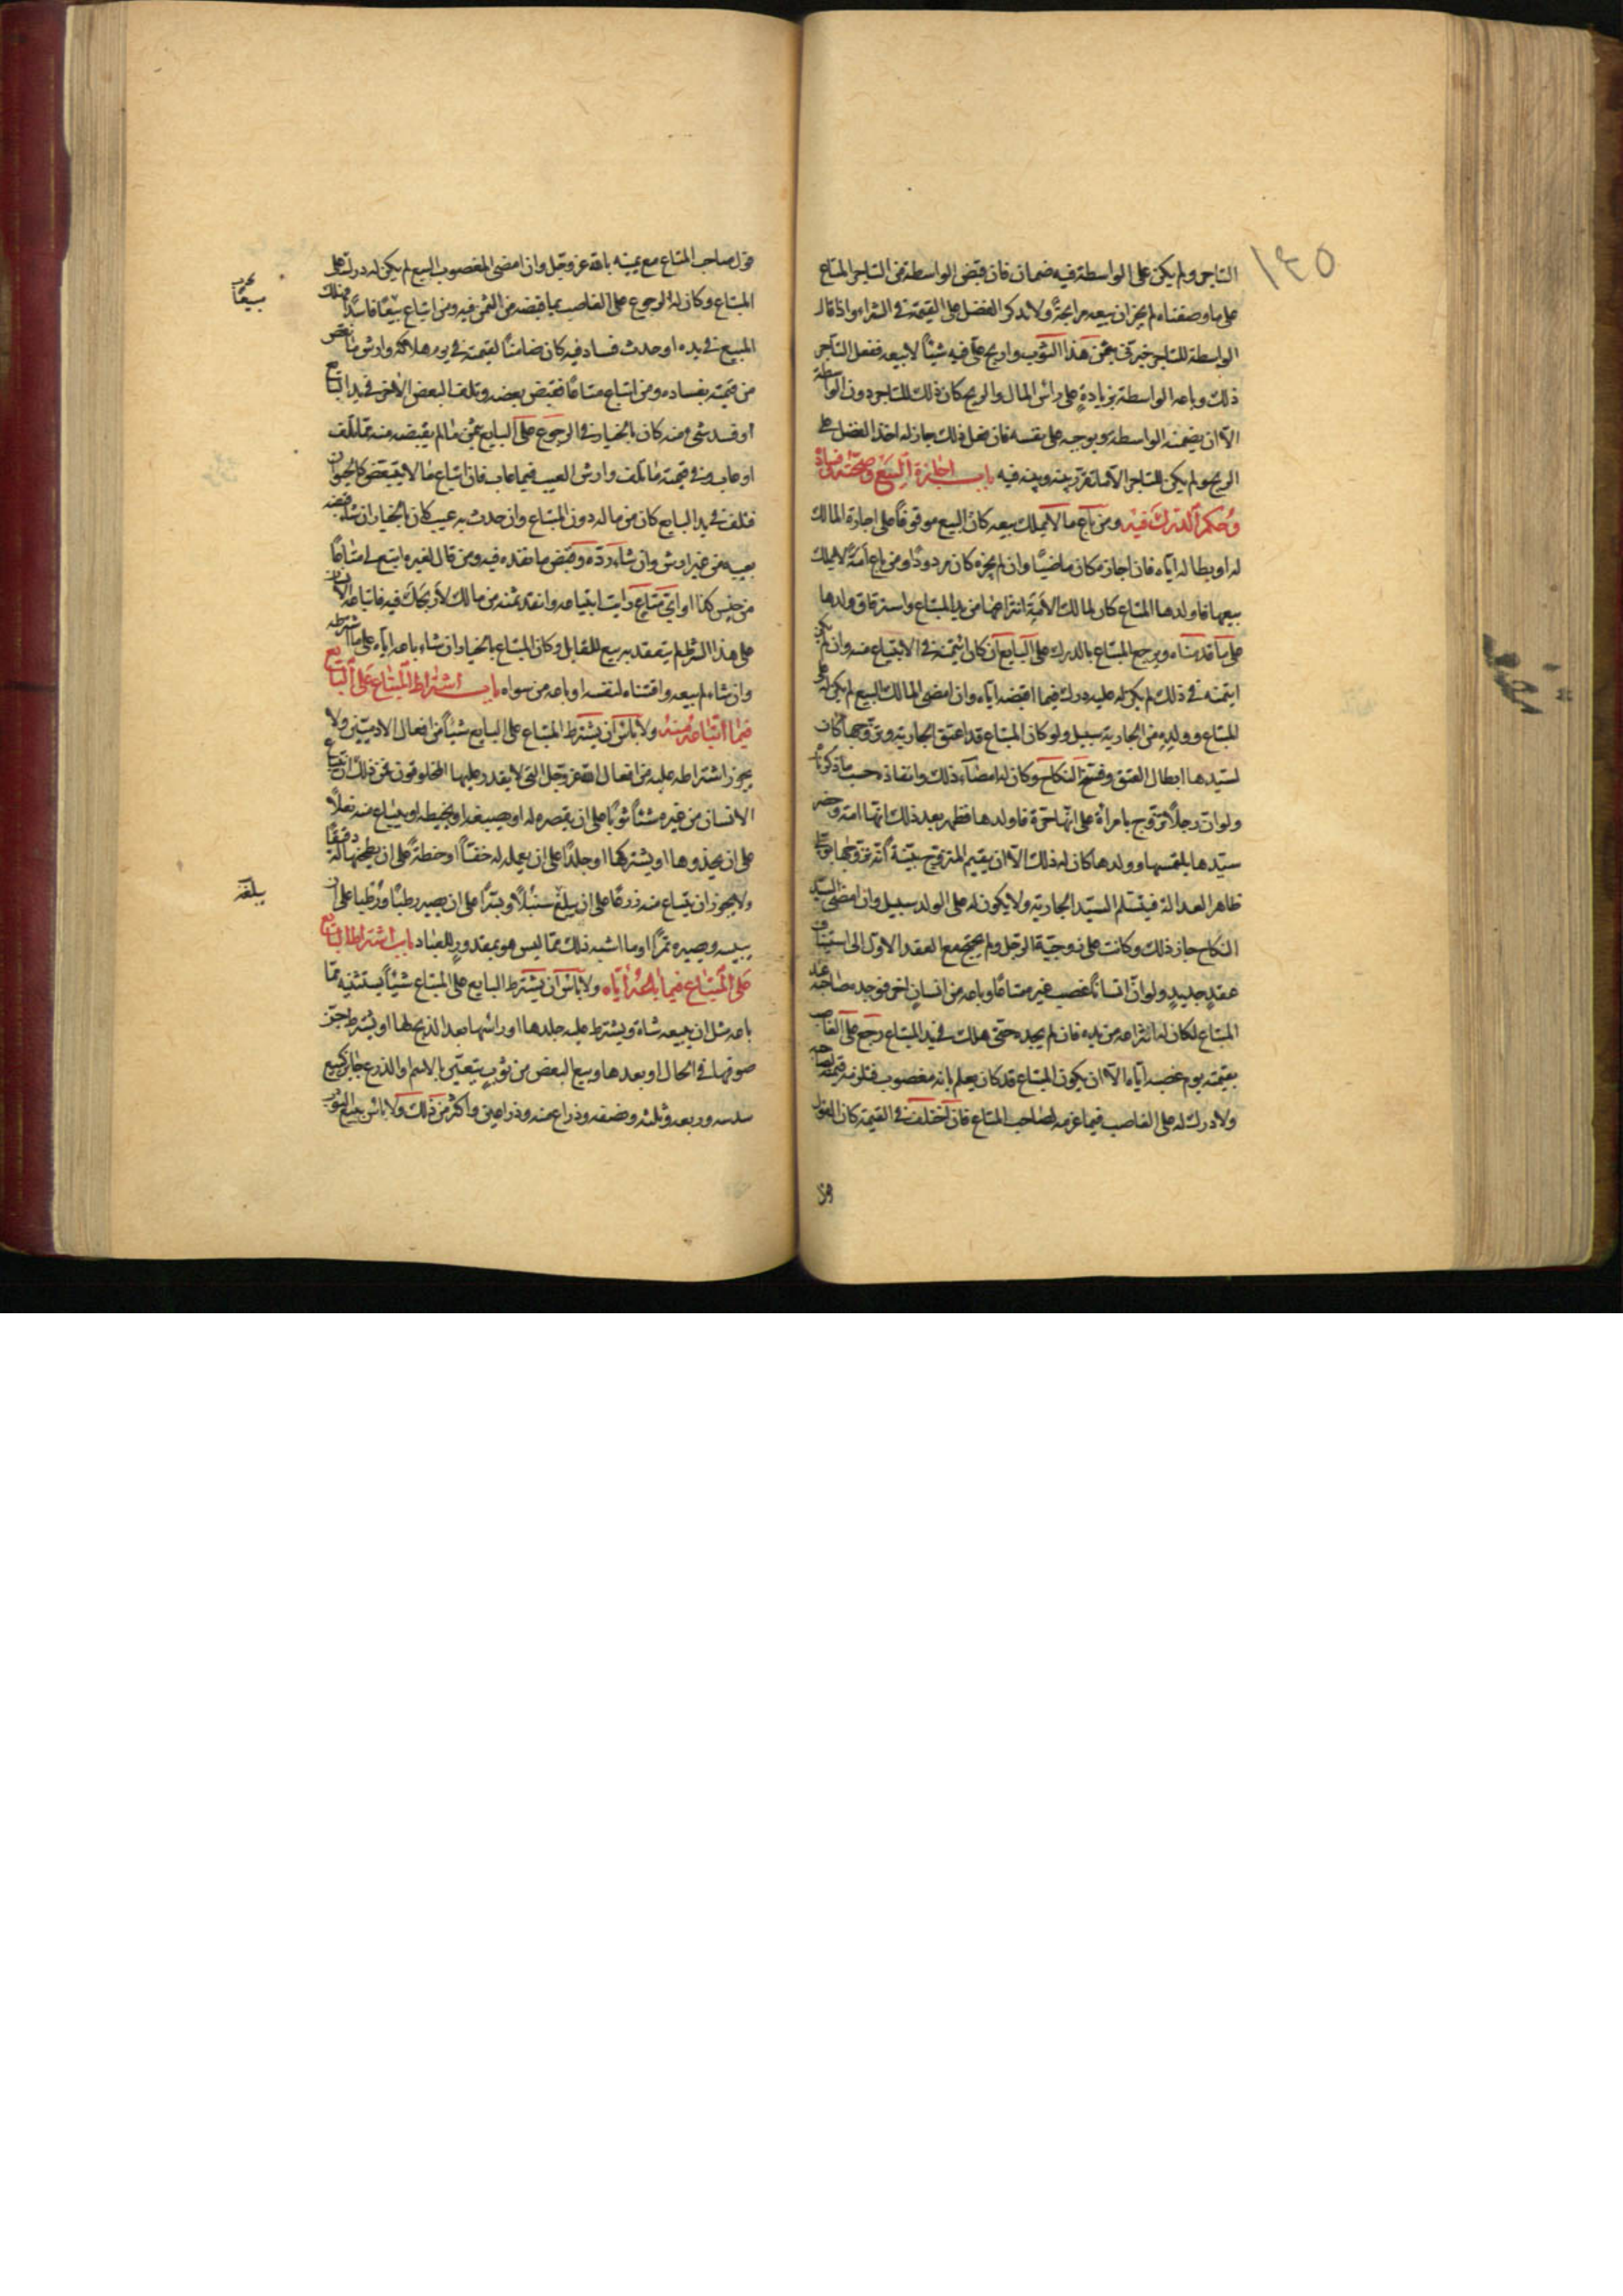 ١٤٥
التاجر ولم يكن على الواسطة فيه ضمان فان قبض الواسطة من التاجر المتاع
على ما وصفناه لم يجز ان يبيعه مرابحة ولا يذكر الفضل على القيمة في الشراء واذا قال
الواسطة للتاجر خبرني بثمن هذا الثوب واربح علي فيه شيئا لابيعه ففعل التاجر
ذلك وباعه الواسطة بزيادة على راس المال والربح كان ذلك للتاجر دون الواسطة
الا ان يضمنه الواسطة ويوجبه على نفسه فان فعل ذلك جاز له اخذ الفضل على
الربح ولم يكن للتاجر الا ما تقرر بينه وبينه فيه باب اجازة البيع وصحته وفساده
وحكم الدرك فيه ومن باع ما لا يملك بيعه كان البيع موقوفا على اجازة المالك
له او بطاله اياه فان اجازه كان ماضيا وان لم يجزه كان مردودا ومن باع امة لا يملك
بيعها فاولدها المبتاع كان لمالك الامة انتزاعها من يد المبتاع واسترقاق ولدها
على ما قدمناه ويرجع المبتاع بالدرك على البايع ان كان ائتمنه في الابتياع منه وان لم يكن
ايتمنه في ذلك لم يكن له عليه درك فيما اقبضه اياه وان امضى المالك البيع لم يكن له على
المبتاع وولده من الجارية سبيل ولو كان المبتاع قد اعتق الجارية وتزوجها كان
لسيدها ابطال العتق وفسخ النكاح وكان له امضاء ذلك وانفاذه حسب ما ذكرناه
ولو ان رجلا تزوج بامراة على انها حرة فاولدها فظهر بعد ذلك انها امة وحضر
سيدها يلتمسها وولدها كان له ذلك الا ان يقيم المتزوج بينة انه تزوجها على
ظاهر العدالة فيتسلم السيد الجارية ولا يكون له على الولد سبيل وان امضى السيد
النكاح جاز ذلك وكانت على زوجية الرجل ولم يحتج مع العقد الاول الى استيناف
عقد جديد ولو ان انسانا غصب غيره متاعا وباعه من انسان اخر فوجده صاحبه عند
المبتاع لكان له انتزاعه من يده فان لم يجده حتى هلك في يد المبتاع رجع على الغاصب
بقيمته يوم غصبه اياه الا ان يكون المبتاع قد كان يعلم بانه مغصوب فتلزمه قيمته لصاحبه
ولا درك له على الغاصب فيما غرمه لصاحب المتاع فان اختلف في القيمة كان القول
قول صاحب المتاع مع يمينه بالله عز وجل وان امضى المغصوب البيع لم يكن له درك على
المبتاع وكان له الرجوع على الغاصب بما قبضه من الثمن فيه ومن ابتاع بيعا فاسدا فهلك
بيعا
المبيع في يده او حدث فساد فيه كان ضامنا لقيمته في يوم هلاكه وارش ما نقص
من قيمته بفساده ومن ابتاع متاعا فقبض بعضه وتلف البعض الاخر في يد البايع
او فسد شيء منه كان بالخيار في الرجوع على البايع بثمن ما لم يقبضه منه مما تلف
او عاب وفي قيمة ما تلف وارش العيب فيما عاب فان ابتاع ما لا يتبعض كالحيوان
فتلف في يد البايع كان من ماله دون المبتاع وان حدث به عيب كان بالخيار ان شاء قبضه
بعيبه من غير ارش وان شاء رده وقبض ما نقده فيه ومن قال لغيره ابتع لي متاعا
من جنس كذا او اي متاع رايت ابتياعه وانقد ثمنه من مالك لاربحك فيه فابتاعه الانسان
على هذا الشرط لم ينعقد به بيع للقايل وكان المبتاع بالخيار ان شاء باعه اياه على ما اشترطه
وان شاء لم يبعه واقتناه لنفسه او باعه من سواه باب اشتراط المبتاع على البايع
فيما ابتاعه منه ولا باس ان يشترط المبتاع على البايع شيئا من افعال الادميين ولا
يجوز اشتراطه عليه من افعال الله عز وجل التي لا يقدر عليها المخلوقون فمن ذلك ان يبتاع
الانسان من غيره ثوبا على ان يقصره له او يصبغه او يخيطه او يبتاع منه نعلا
على ان يحذوها او يشتركها او جلدا على ان يعمله له خفا او حنطة على ان يطحنها له دقيقا
ولا يجوز ان يبتاع منه زرعا على ان يبلغ سنبلا او بسرا على ان يصير رطبا ورطبا على ان
يبلغه
ييبسه ويصيره تمرا او ما اشبه ذلك مما ليس هو بمقدور للعباد باب اشتراط البايع
على المبتاع فيما باعه اياه ولا باس ان يشترط البايع على المبتاع شيئا يستثنيه مما
باعه مثل ان يبيعه شاة ويشترط عليه جلدها او راسها بعد الذبح لها او يشترط جز
صوفها في الحال او بعدها وبيع البعض من ثوب يتعين بالاسم او الذرع جايز كبيع
سدسه وربعه وثلثه ونصفه وذراع منه وذراعين واكثر من ذلك ولا باس ببيع الثوب